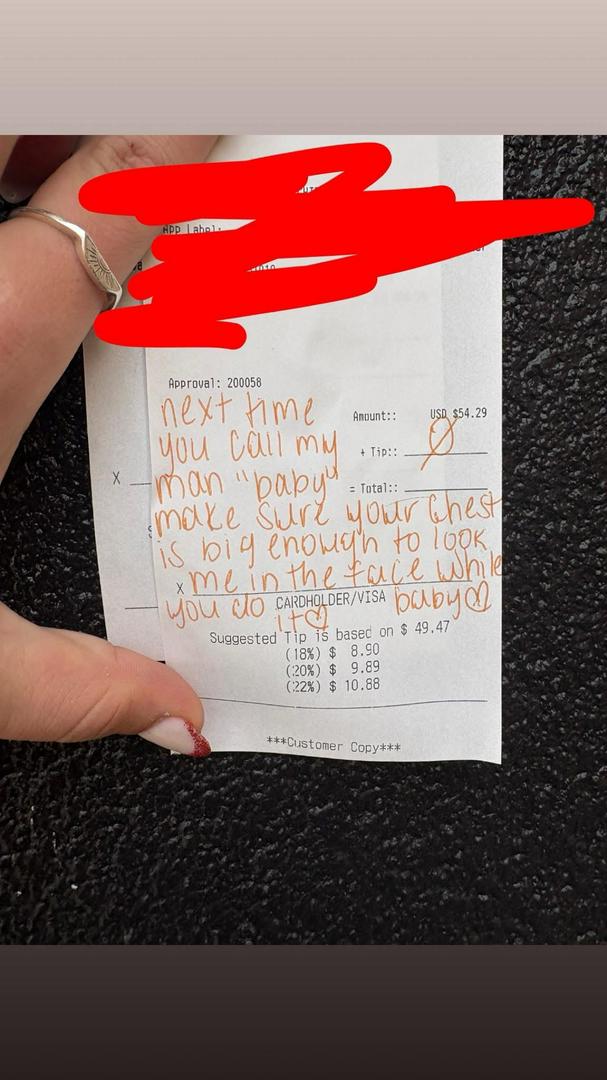 App Label:
Approval: 200058
next time
Amount:: USD $54.29
you call my
+ Tip:: Ø
man "baby"
= Total::
X
make sure your chest
is big enough to look
X me in the face while
you do CARDHOLDER/VISA baby♡
it♡
Suggested Tip is based on $ 49.47
(18%) $ 8.90
(20%) $ 9.89
(22%) $ 10.88
***Customer Copy***